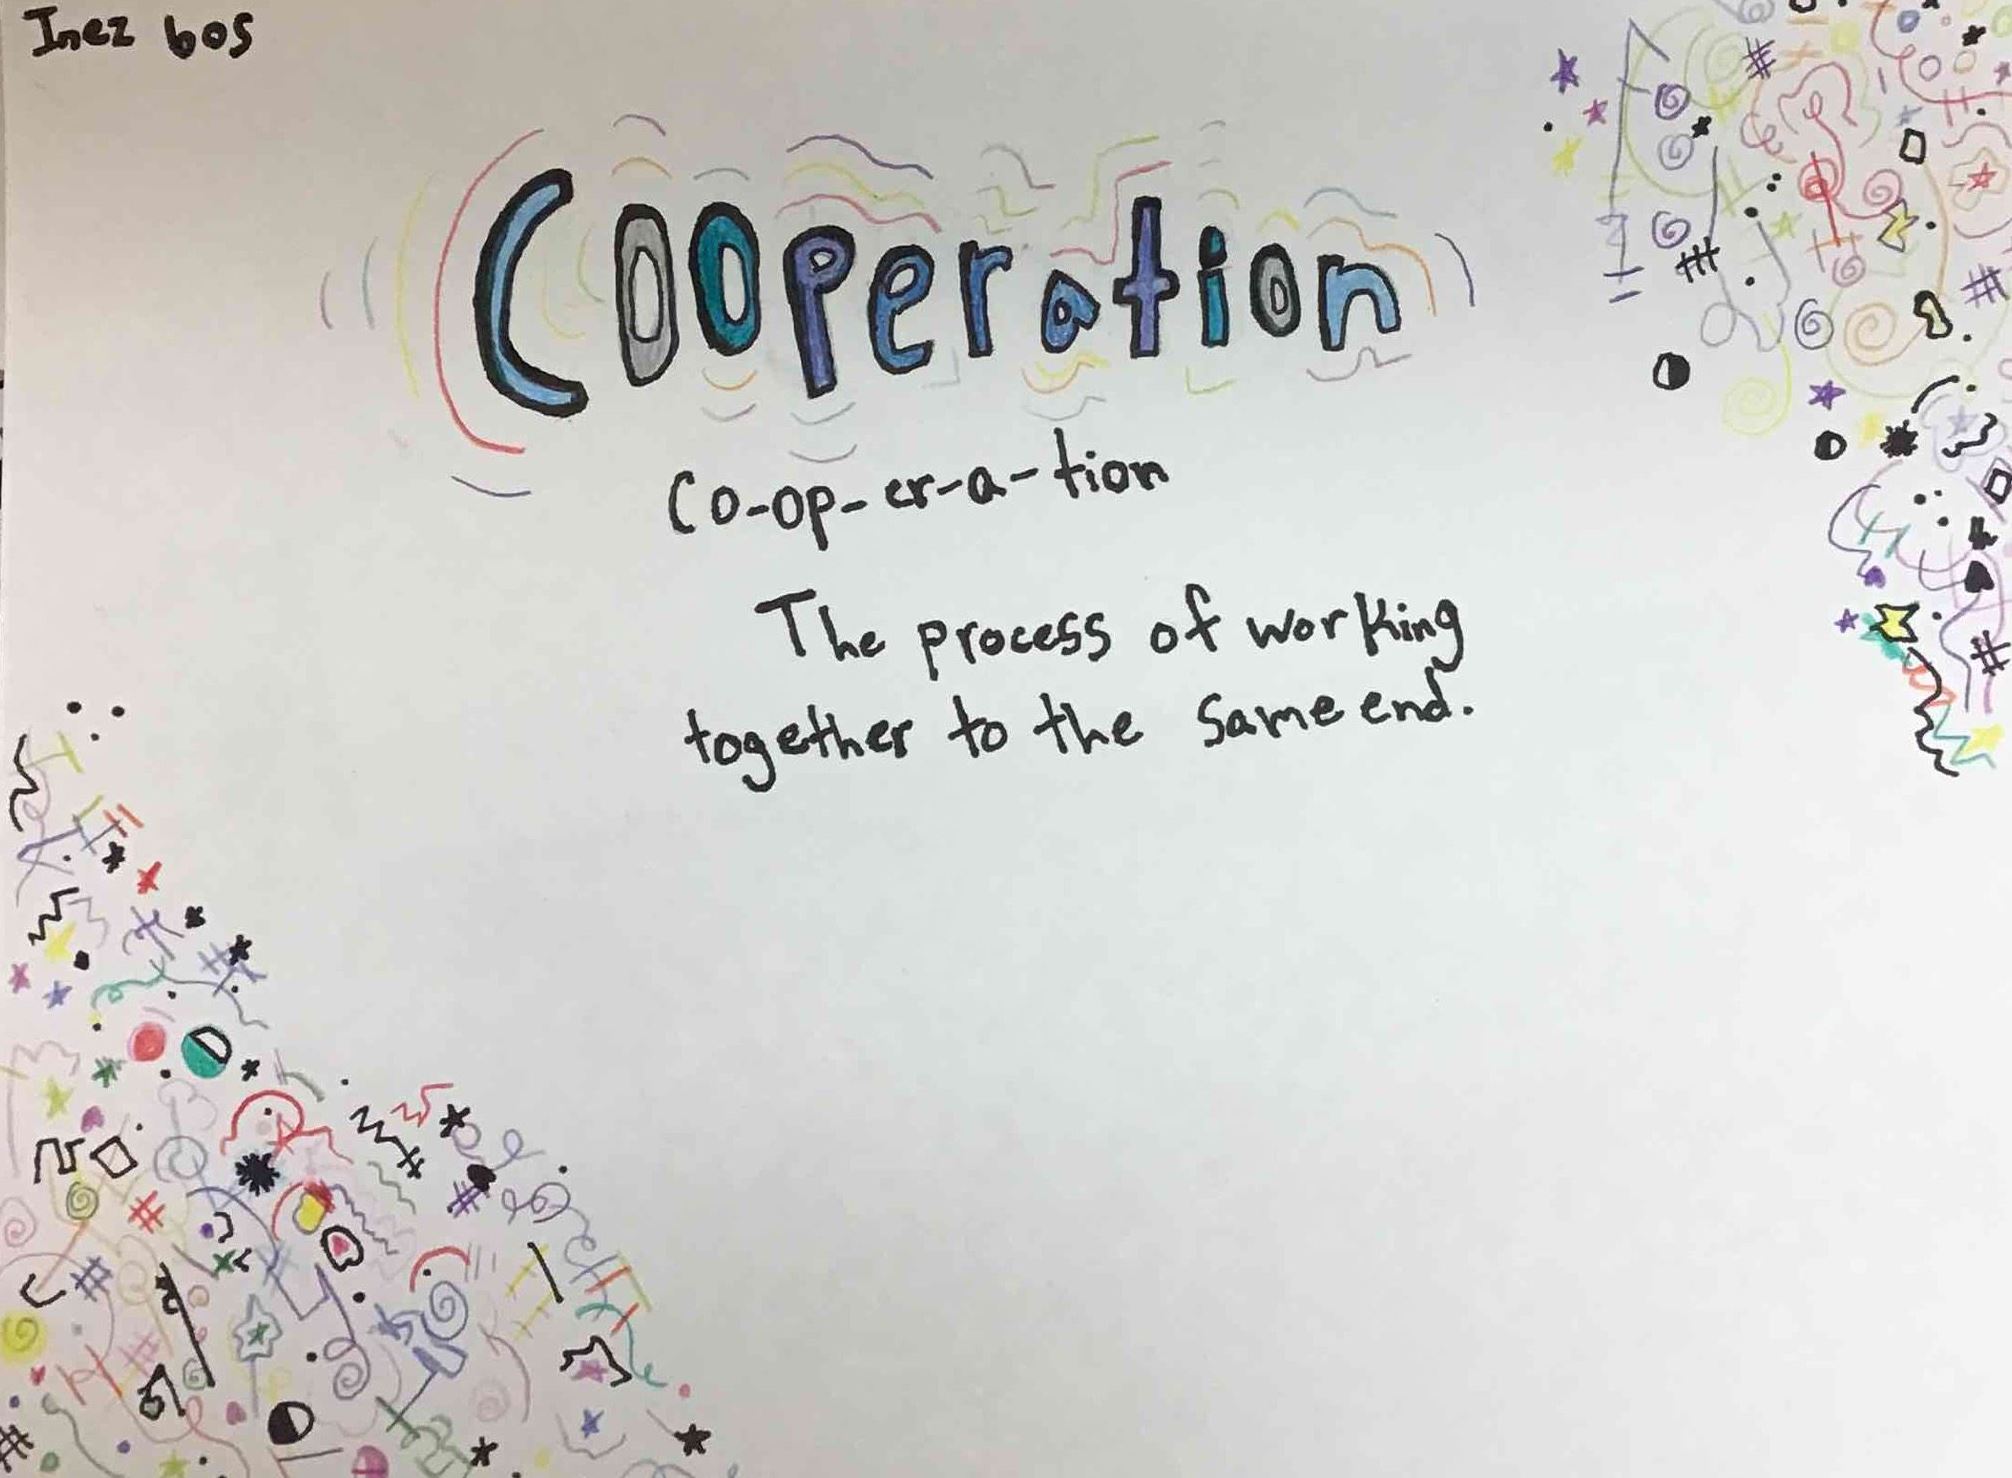 Inez bos
Cooperation
Co-op-er-a-tion
The process of working
together to the same end.